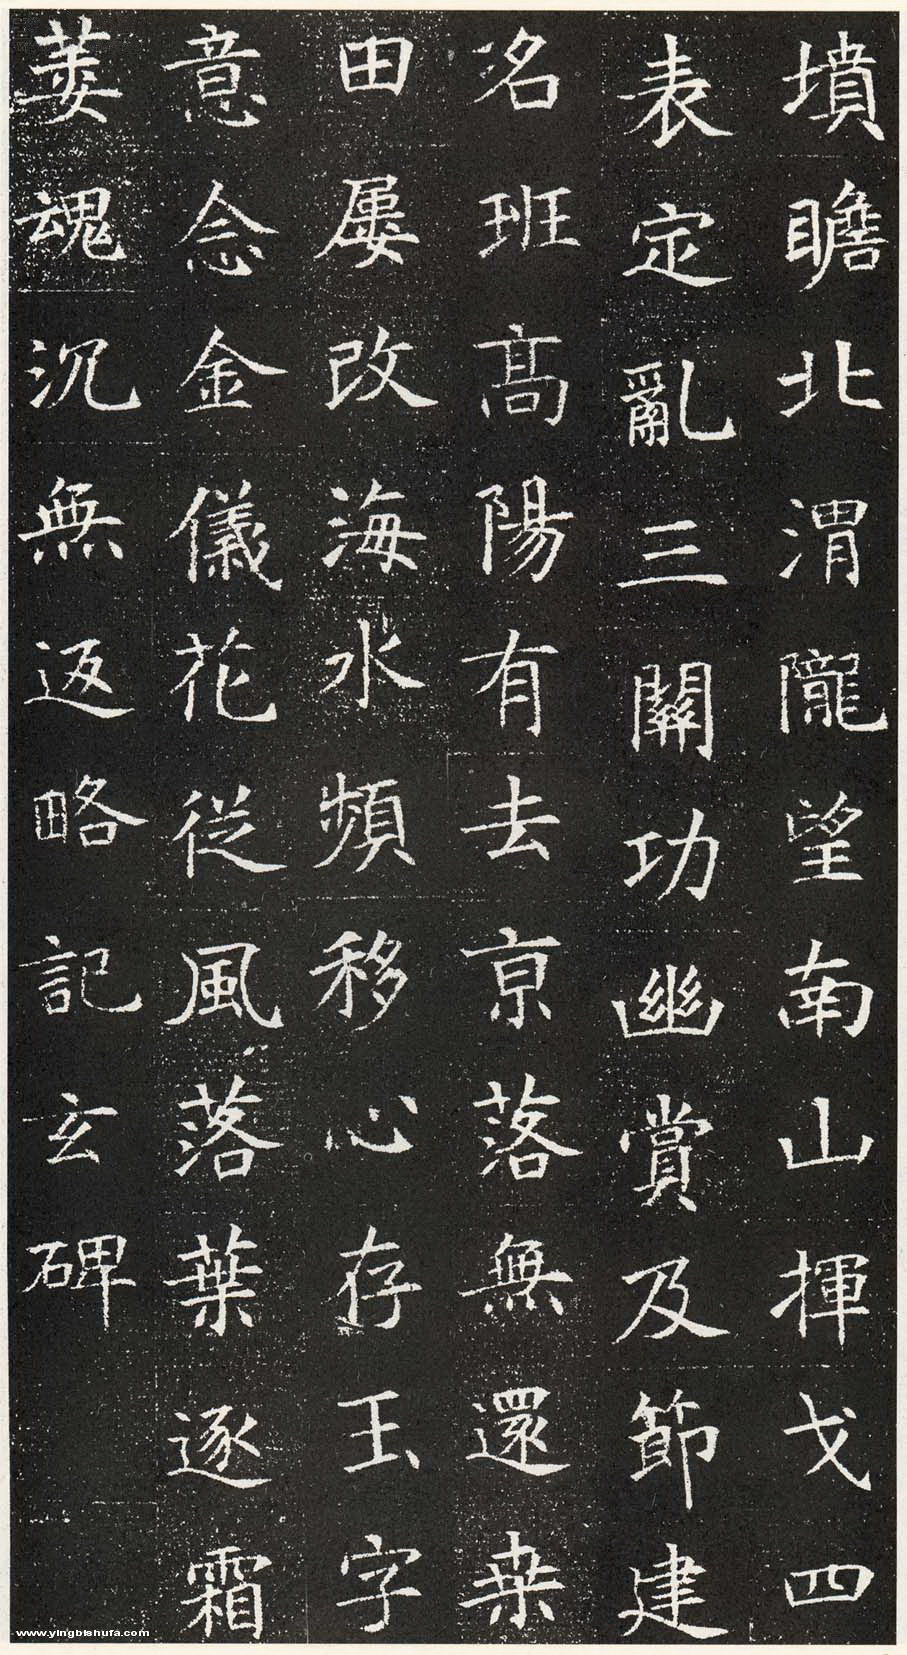 墳瞻北渭隴望南山揮戈四
表定亂三關功幽賞及節建
名班髙陽有去亰落無還桒
田屢改海水頻移心存玉字
意念金儀花従風落葉逐霜
萎魂沉無返略記玄碑
www.yingbishufa.com